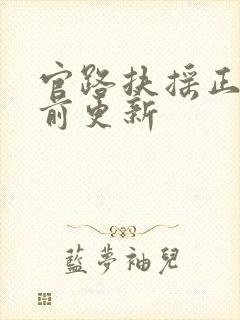 官路扶摇正
前更新
藍夢袖兒